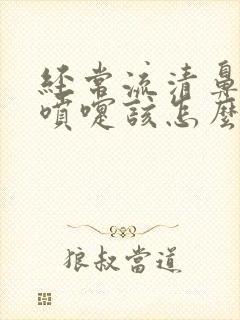 經常流清鼻
噴嚏該怎麼
狼叔當道